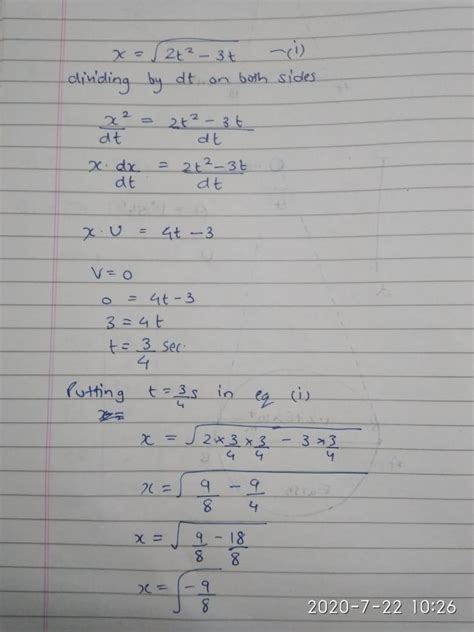 x = √2t² - 3t —(i)
dividing by dt on both sides
x²/dt = 2t² - 3t/dt
x. dx/dt = 2t² - 3t/dt
x. U = 4t - 3
V = 0
0 = 4t - 3
3 = 4t
t = 3/4 sec.
Putting t = 3/4 s in eq (i)
x = √2 × 3/4 × 3/4 - 3 × 3/4
x = √9/8 - 9/4
x = √9/8 - 18/8
x = √-9/8
2020-7-22 10:26